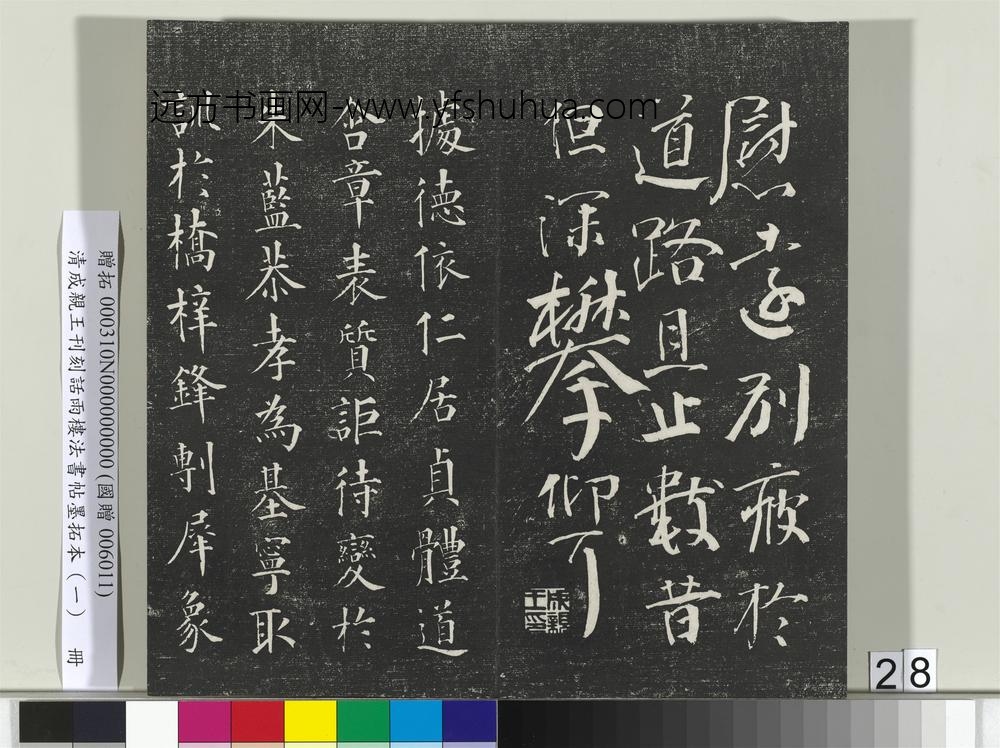 慰 遠別疲於
道路且止數昔
但深攀仰可
成親王印
據德依仁居貞體道
含章表質詎待變於
朱藍恭孝為基寧取
訓於橋梓鋒剸犀象
远方书画网-www.yfshuhua.com
贈拓 000310N000000000 (國贈 006011)
清成親王刊刻話雨樓法書帖墨拓本 (一) 冊
28